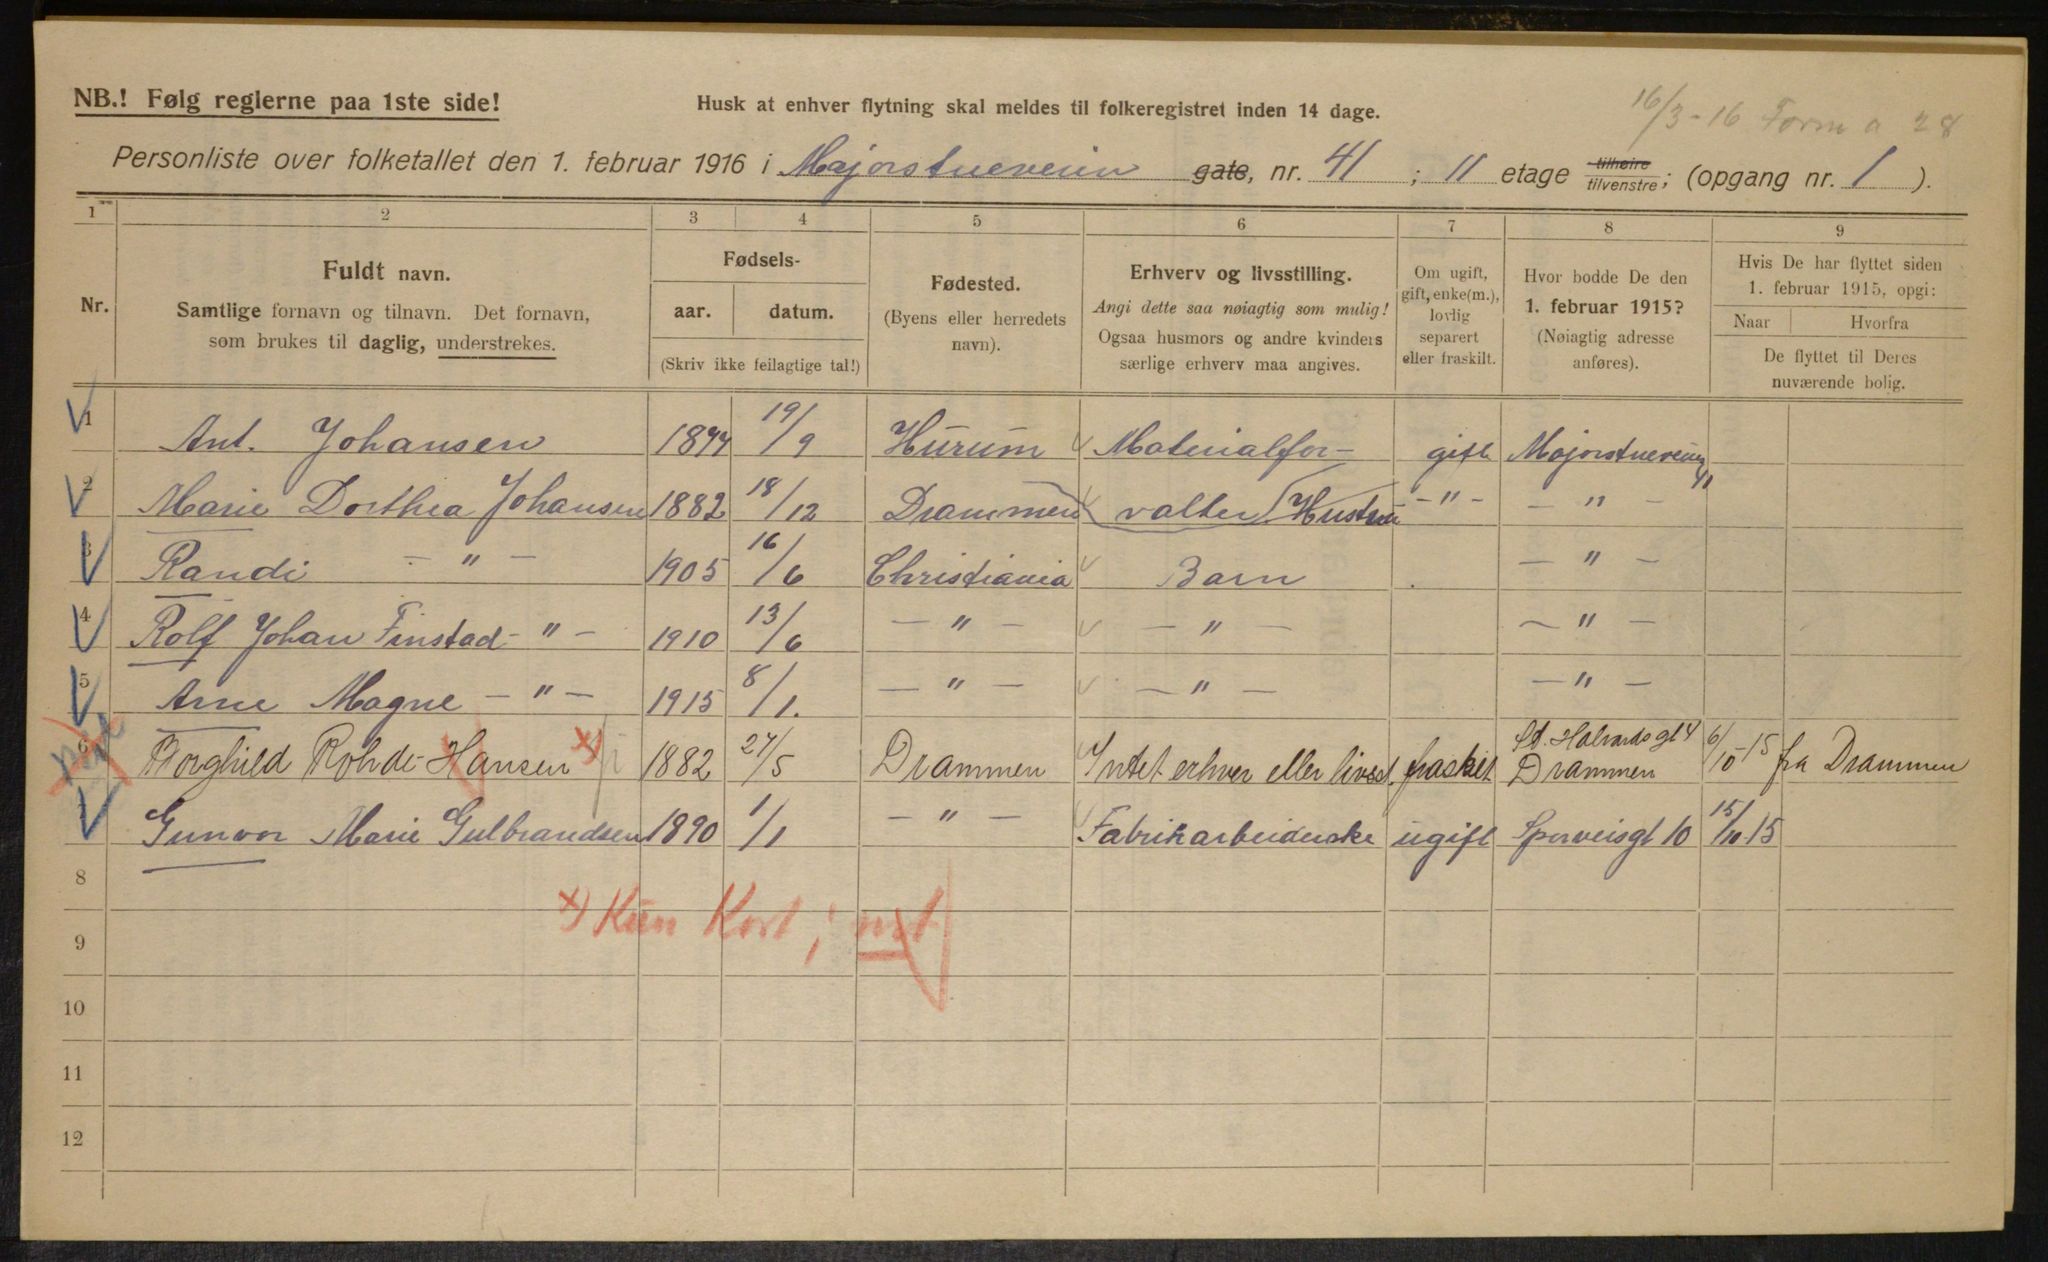 NB.! Følg reglerne paa 1ste side!
Husk at enhver flytning skal meldes til folkeregistret inden 14 dage.
16/3-16 Form a 28
Personliste over folketallet den 1. februar 1916 i Majorstueveien gate, nr. 41 ; II etage tilhøire tilvenstre; (opgang nr. 1 ).
1 2 3 4 5 6 7 8 9
Nr.
Fuldt navn.
Samtlige fornavn og tilnavn. Det fornavn,
som brukes til daglig, understrekes.
Fødsels-
aar. datum.
(Skriv ikke feilagtige tal!)
Fødested.
(Byens eller herredets
navn).
Erhverv og livsstilling.
Angi dette saa nøiagtig som mulig!
Ogsaa husmors og andre kvinders
særlige erhverv maa angives.
Om ugift,
gift, enke(m.),
lovlig
separert
eller fraskilt.
Hvor bodde De den
1. februar 1915?
(Nøiagtig adresse
anføres).
Hvis De har flyttet siden
1. februar 1915, opgi:
Naar Hvorfra
De flyttet til Deres
nuværende bolig.
1 Ant. Johansen 19/9 Hurum Materialfor- gift Majorstueveien 41
2 Marie Dorthea Johansen 1882 18/12 Drammen valter Hustru -"- -"-
3 Randi -"- 1905 16/6 Christiania Barn -"-
4 Rolf Johan Finstad -"- 1910 13/6 -"- -"- -"-
5 Arne Magne -"- 1915 8/1. -"- -"- -"-
6 Borghild Rohde-Hansen x) 1882 27/5 Drammen Intet erhver eller livsst. fraskilt St. Halvards gt 4 Drammen 6/10-15 fra Drammen
7 Gunvor Marie Gulbrandsen 1890 1/1 -"- Fabrikarbeiderske ugift Sporveisgt 10 15/10-15
8
x) Kun Kort;
9
10
11
12